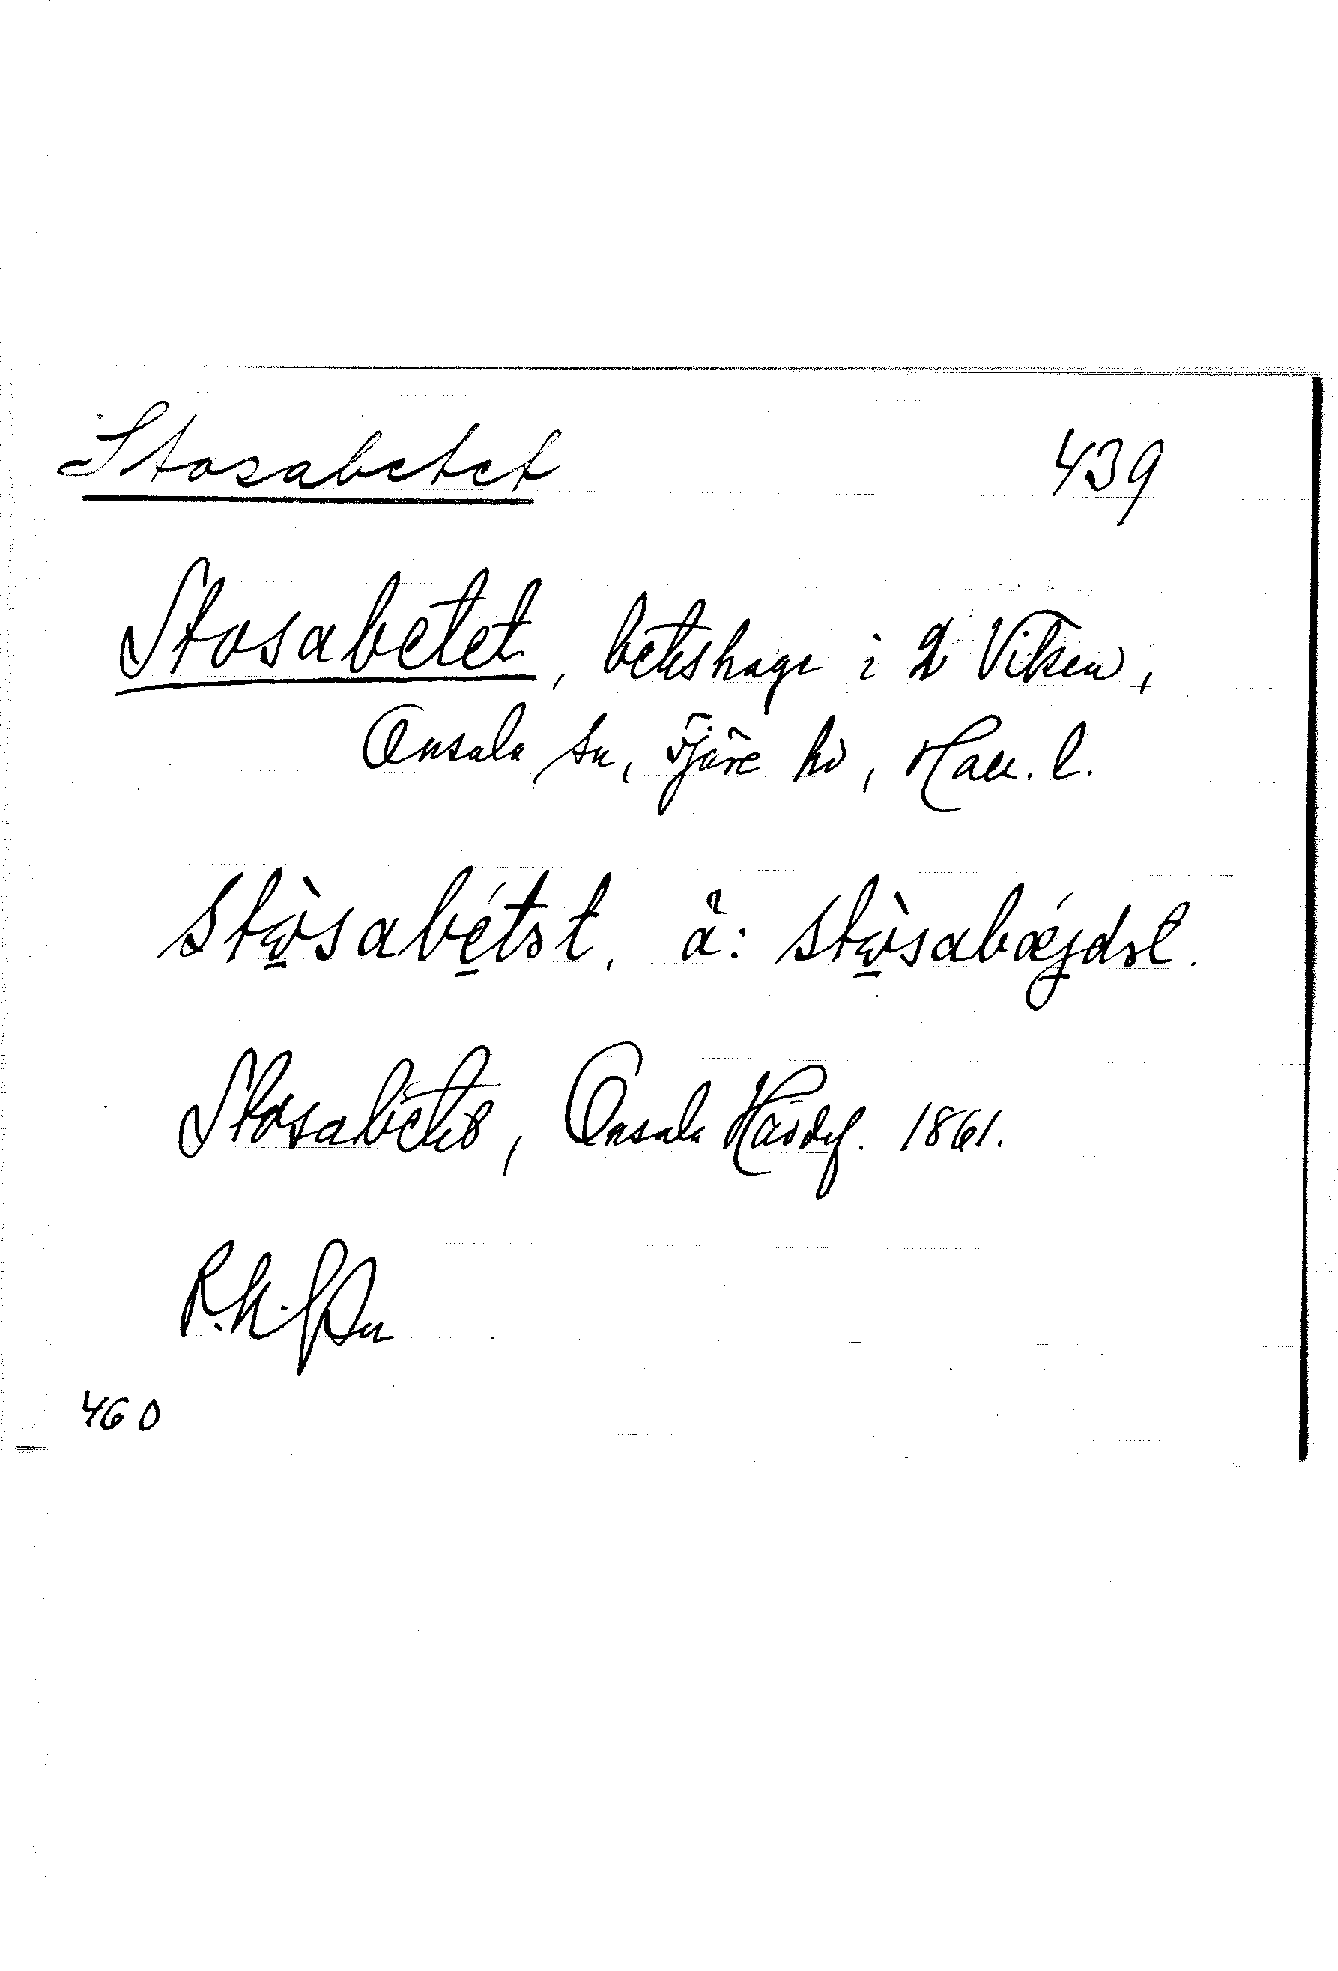 Stosabetet 439
Stosabetet, beteshage i 2 Viken,
Onsala sn, Fjäre hd, Hall. l.
stὼsabétət. ä: stὼsabǽjdət.
Stosabetet, Onsala 1861.
460